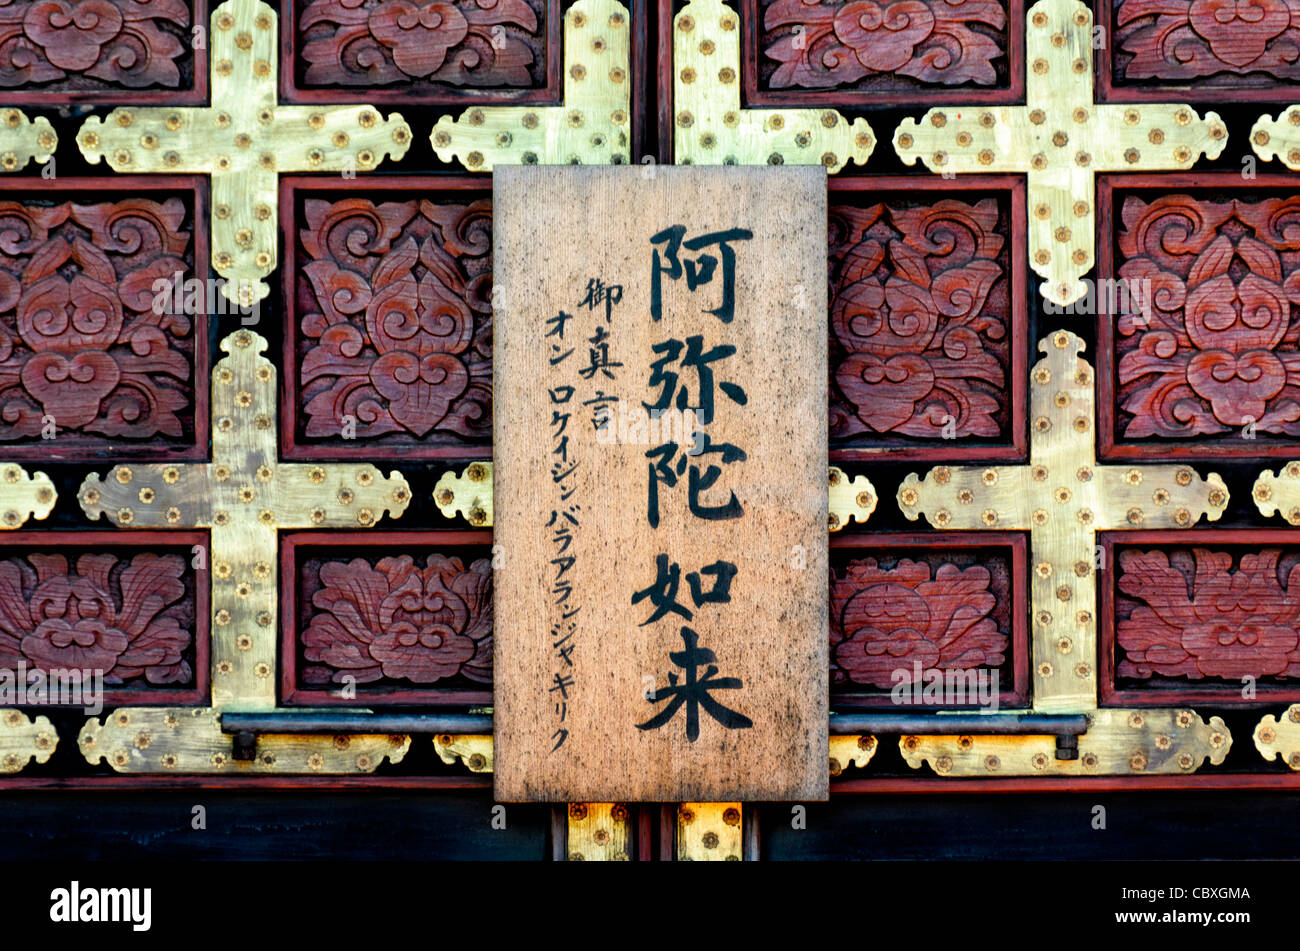 阿弥陀如来
御真言
オン ロケイジンバラアランジャキリク
alamy
Image ID: CBXGMA
www.alamy.com